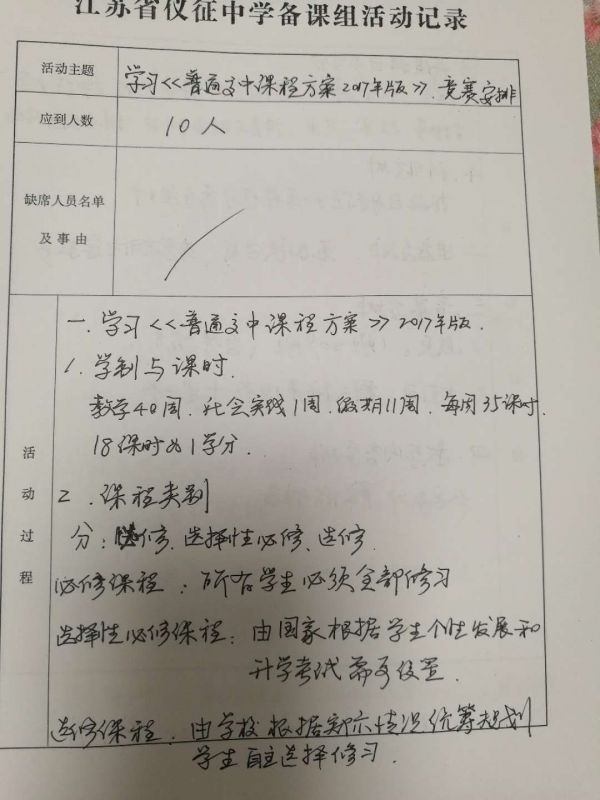 江苏省仪征中学备课组活动记录
活动主题
学习<<普通高中课程方案2017年版>>、竞赛安排
应到人数
10人
缺席人员名单
及事由
活动过程
一.学习<<普通高中课程方案>>2017年版.
1.学制与课时.
教学40周.社会实践1周.假期11周.每周35课时.
18课时为1学分.
2.课程类别
分:必修、选择性必修、选修.
必修课程:所有学生必须全部修习
选择性必修课程:由国家根据学生个性发展和
升学考试需要设置.
选修课程.由学校根据实际情况统筹规划
学生自主选择修习.